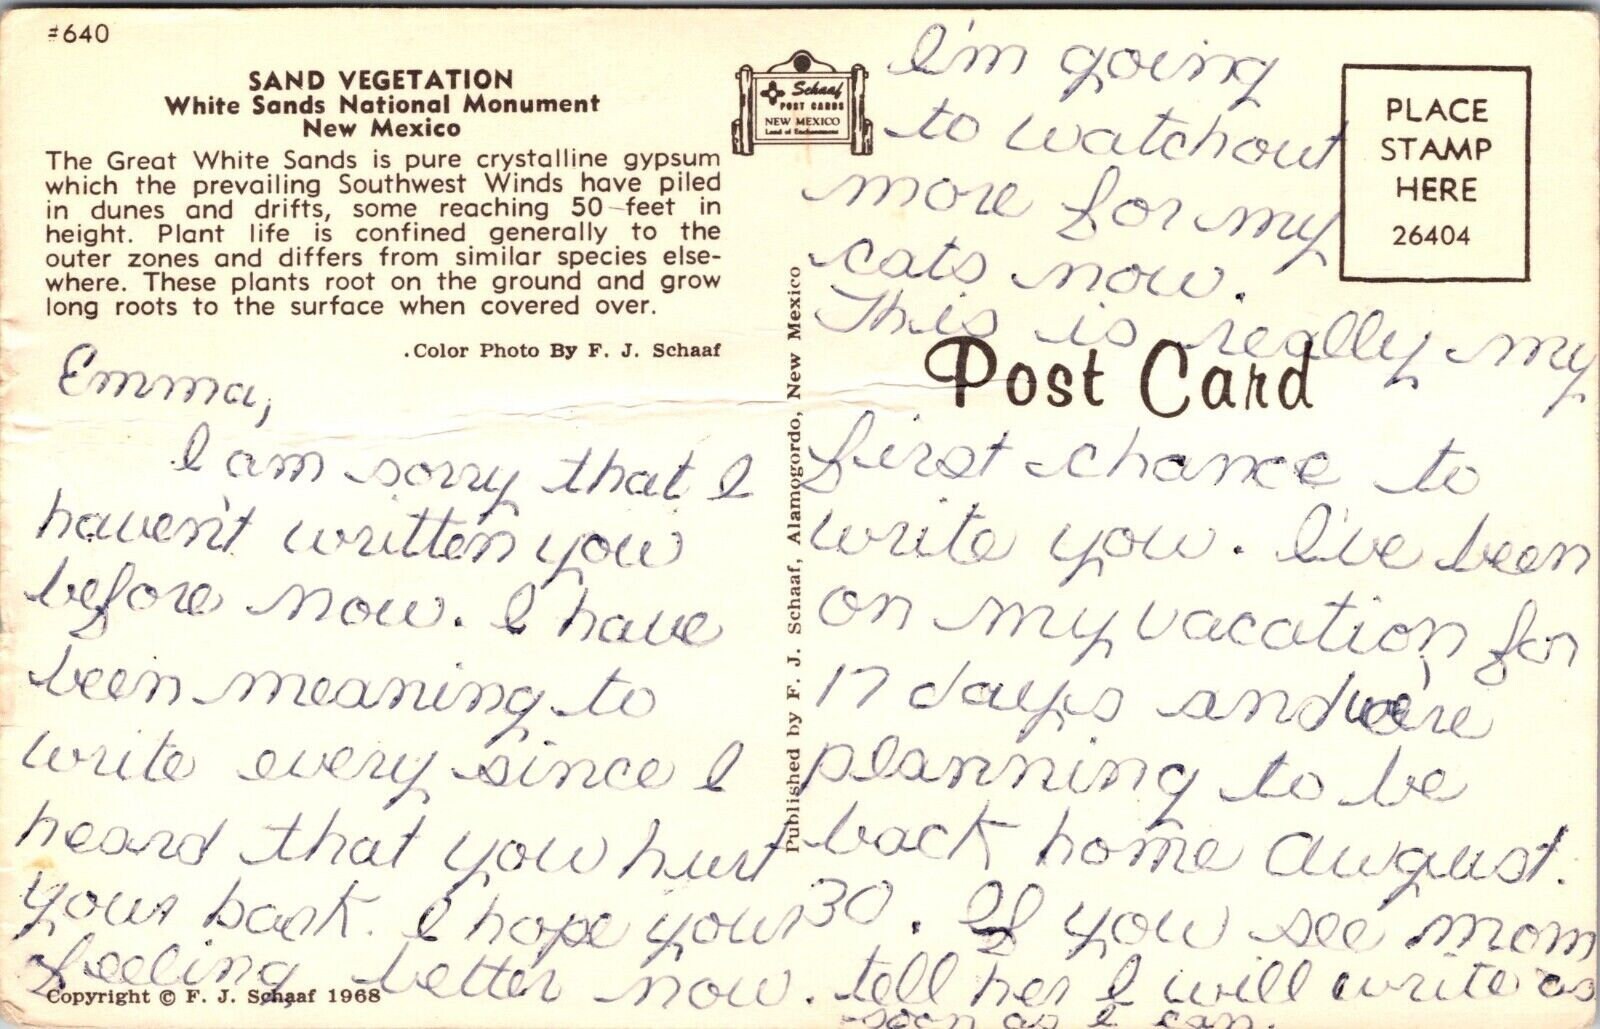 #640
SAND VEGETATION
White Sands National Monument
New Mexico
The Great White Sands is pure crystalline gypsum
which the prevailing Southwest Winds have piled
in dunes and drifts, some reaching 50 feet in
height. Plant life is confined generally to the
outer zones and differs from similar species else-
where. These plants root on the ground and grow
long roots to the surface when covered over.
.Color Photo By F. J. Schaaf
Emma,
I am sorry that I
haven't written you
before now. I have
been meaning to
write every since I
heard that you hurt
your back. I hope your
feeling better now.
Copyright © F. J. Schaaf 1968
Schaaf
POST CARDS
NEW MEXICO
Land of Enchantment
Published by F. J. Schaaf, Alamogordo, New Mexico
PLACE
STAMP
HERE
26404
Post Card
I'm going
to watchout
more for my
cats now.
This is really my
first chance to
write you. I've been
on my vacation for
17 days and we're
planning to be
back home August.
30. If you see mom
tell her I will write as
soon as I can.